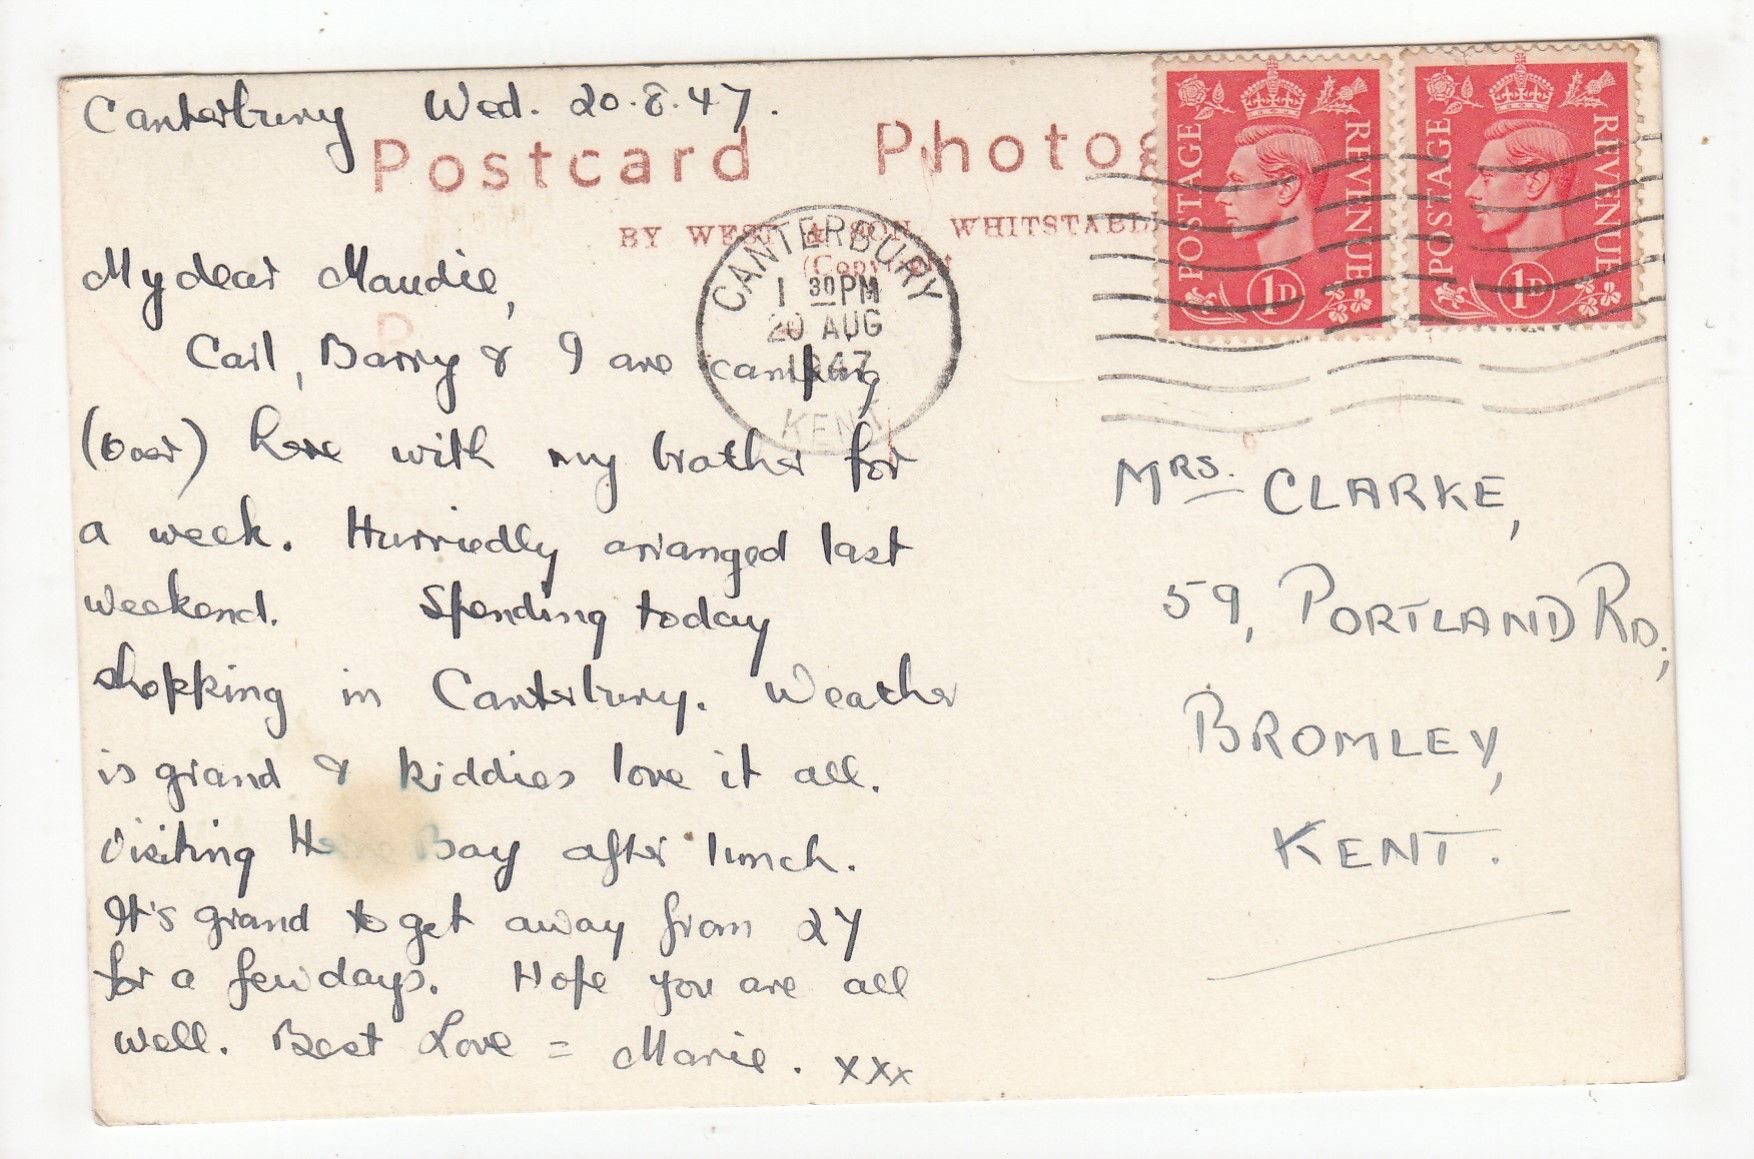 Canterbury Wed. 20.8.47.
Postcard Photog
BY WEST & SON, WHITSTABL
(Copyright
CANTERBURY
1 30 PM
20 AUG
1947
KENT
POSTAGE REVENUE
1D
POSTAGE REVENUE
1D
My dear Maudie,
Carl, Barry & I are camping
(over) here with my brother for
a week. Hurriedly arranged last
weekend. Spending today
shopping in Canterbury. Weather
is grand & kiddies love it all.
Visiting Herne Bay after lunch.
It's grand to get away from 27
for a few days. Hope you are all
well. Best Love = Marie. xxx
MRS. CLARKE,
59, PORTLAND RD.,
BROMLEY,
KENT.